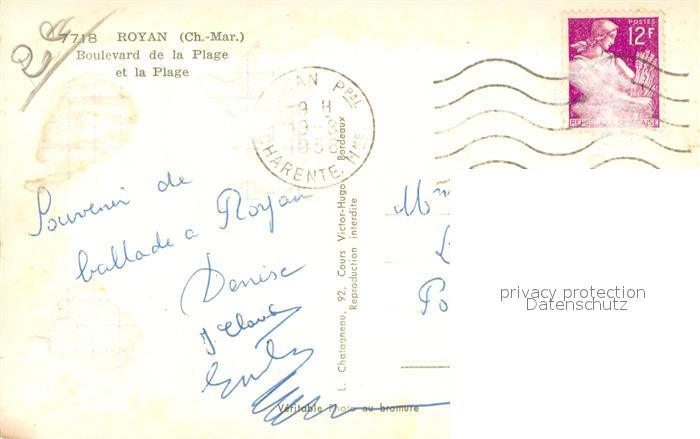 7718 ROYAN (Ch.-Mar.)
Boulevard de la Plage
et la Plage
ROYAN Ppal
9 H
19-8
1958
CHARENTE Mme
POSTES
12F
REPUBLIQUE FRANÇAISE
Souvenir de
ballade a Royan
Denise
J Claude
L. Chatagneau, 92, Cours Victor-Hugo Bordeaux
Reproduction interdite
Véritable Photo au bromure
Mme
Po
privacy protection
Datenschutz